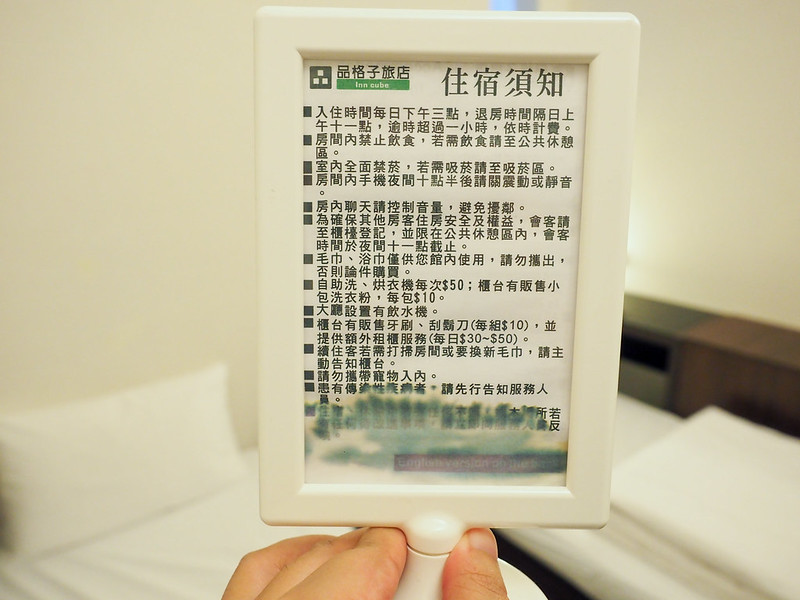 品格子旅店
Inn cube
住宿須知
■入住時間每日下午三點，退房時間隔日上
午十一點，逾時超過一小時，依時計費。
■房間內禁止飲食，若需飲食請至公共休憩
區。
■室內全面禁菸，若需吸菸請至吸菸區。
■房間內手機夜間十點半後請關震動或靜音
。
■房內聊天請控制音量，避免擾鄰。
■為確保其他房客住房安全及權益，會客請
至櫃檯登記，並限在公共休憩區內，會客
時間於夜間十一點截止。
■毛巾、浴巾僅供您館內使用，請勿攜出，
否則論件購買。
■自助洗、烘衣機每次$50；櫃台有販售小
包洗衣粉，每包$10。
■大廳設置有飲水機。
■櫃台有販售牙刷、刮鬍刀(每組$10)，並
提供額外租櫃服務(每日$30~$50)。
■續住客若需打掃房間或要換新毛巾，請主
動告知櫃台。
■請勿攜帶寵物入內。
■患有傳染性疾病者，請先行告知服務人
員。
所若
反
English version on the